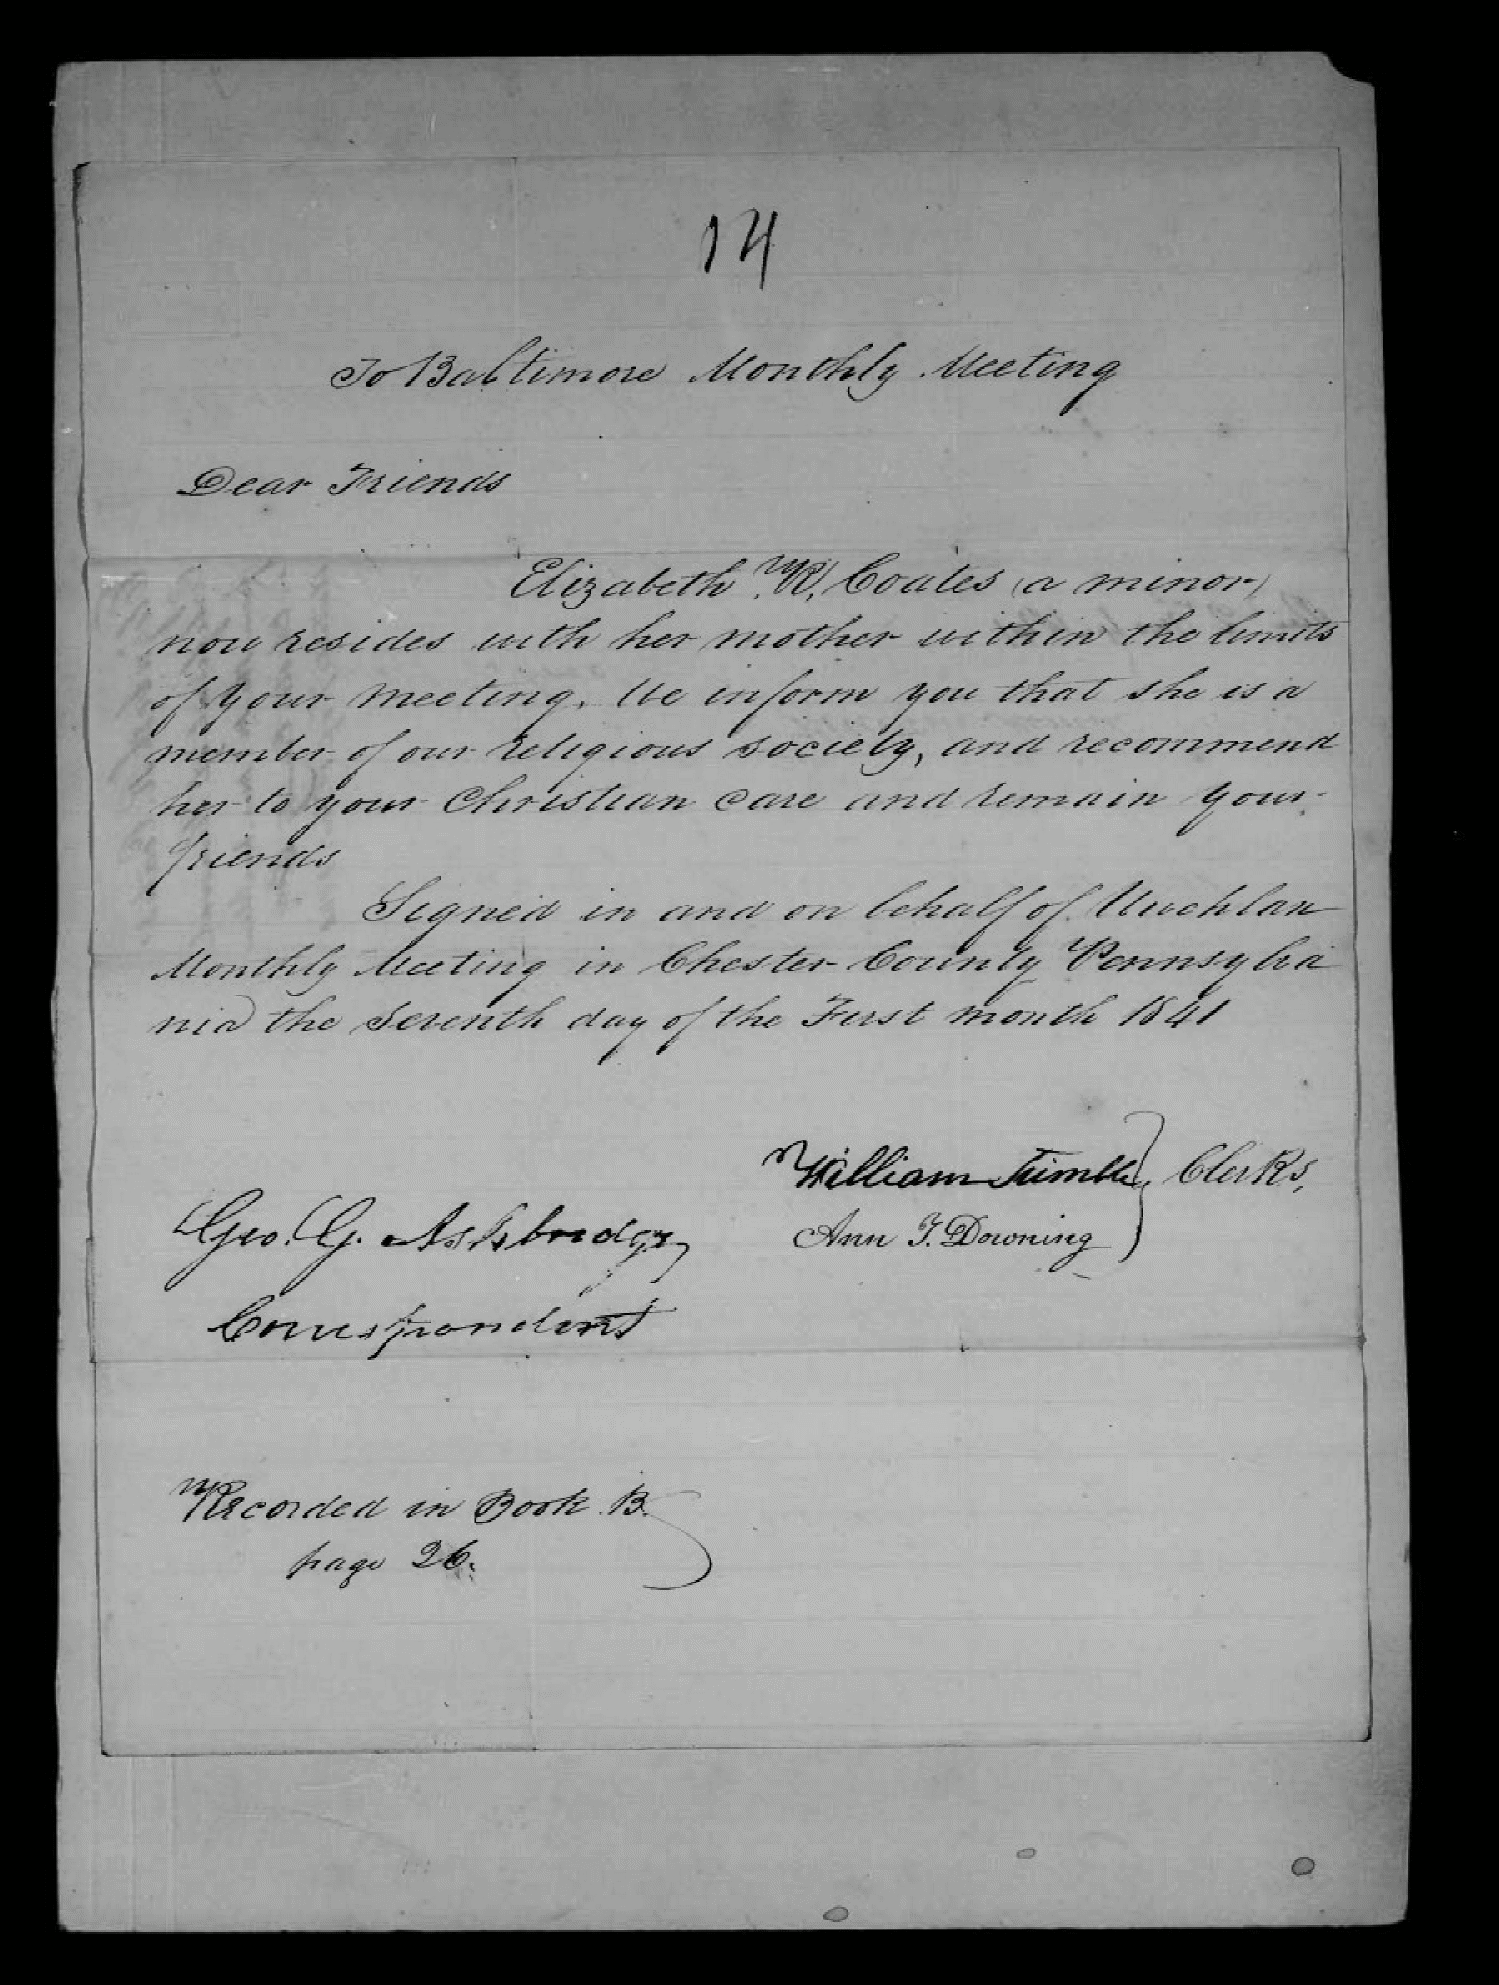 14
To Baltimore Monthly Meeting
Dear Friends
Elizabeth R. Coates (a minor)
now resides with her mother within the limits
of your meeting. We inform you that she is a
member of our religious society, and recommend
her to your Christian care and remain your
friends
Signed in and on behalf of Uwchlan
Monthly Meeting in Chester County Pennsylva
nia the Seventh day of the First month 1841
William Trimble } Clerks,
Ann T. Downing
Geo. G. Ashbridge,
Correspondent
Recorded in Book B.
page 26.